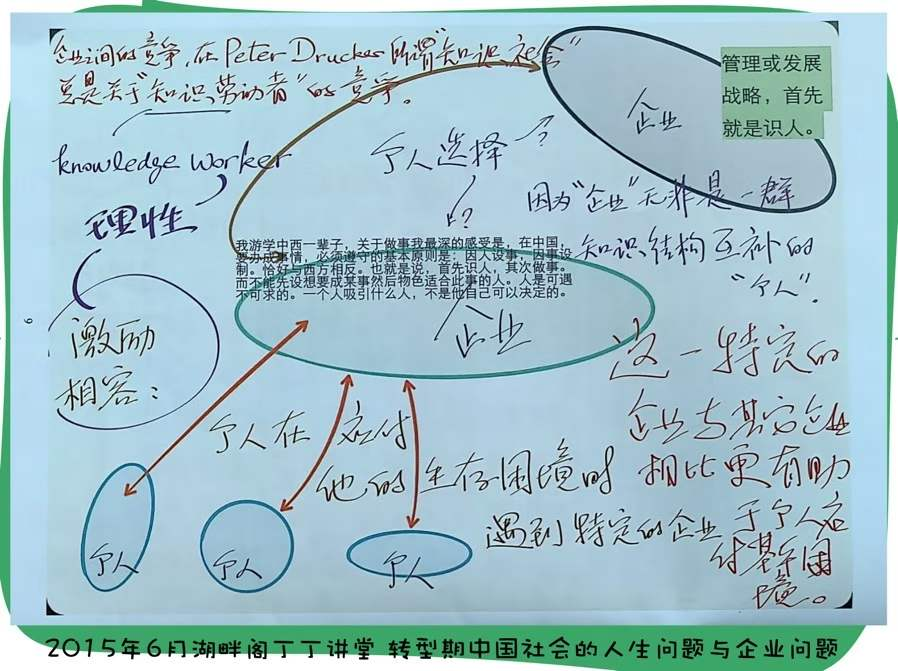 企业之间的竞争,在Peter Drucker所谓“知识社会”
总是关于“知识劳动者”的竞争。
管理或发展
战略，首先
就是识人。
企业
knowledge worker
个人选择
理性
因为“企业”无非是一群
知识结构互补的
“个人”.
我游学中西一辈子，关于做事我最深的感受是，在中国，
要办成事情，必须遵守的基本原则是：因人设事，因事设
制。恰好与西方相反。也就是说，首先识人，其次做事。
而不能先设想要成某事然后物色适合此事的人。人是可遇
不可求的。一个人吸引什么人，不是他自己可以决定的。
企业
激励
相容：
这一特定的
企业与其它企业
相比更有助
于个人应
付其生存困
境。
个人在 应付
他的生存困境时
遇到特定的企业
个人
个人
个人
2015年6月湖畔阁丁丁讲堂 转型期中国社会的人生问题与企业问题